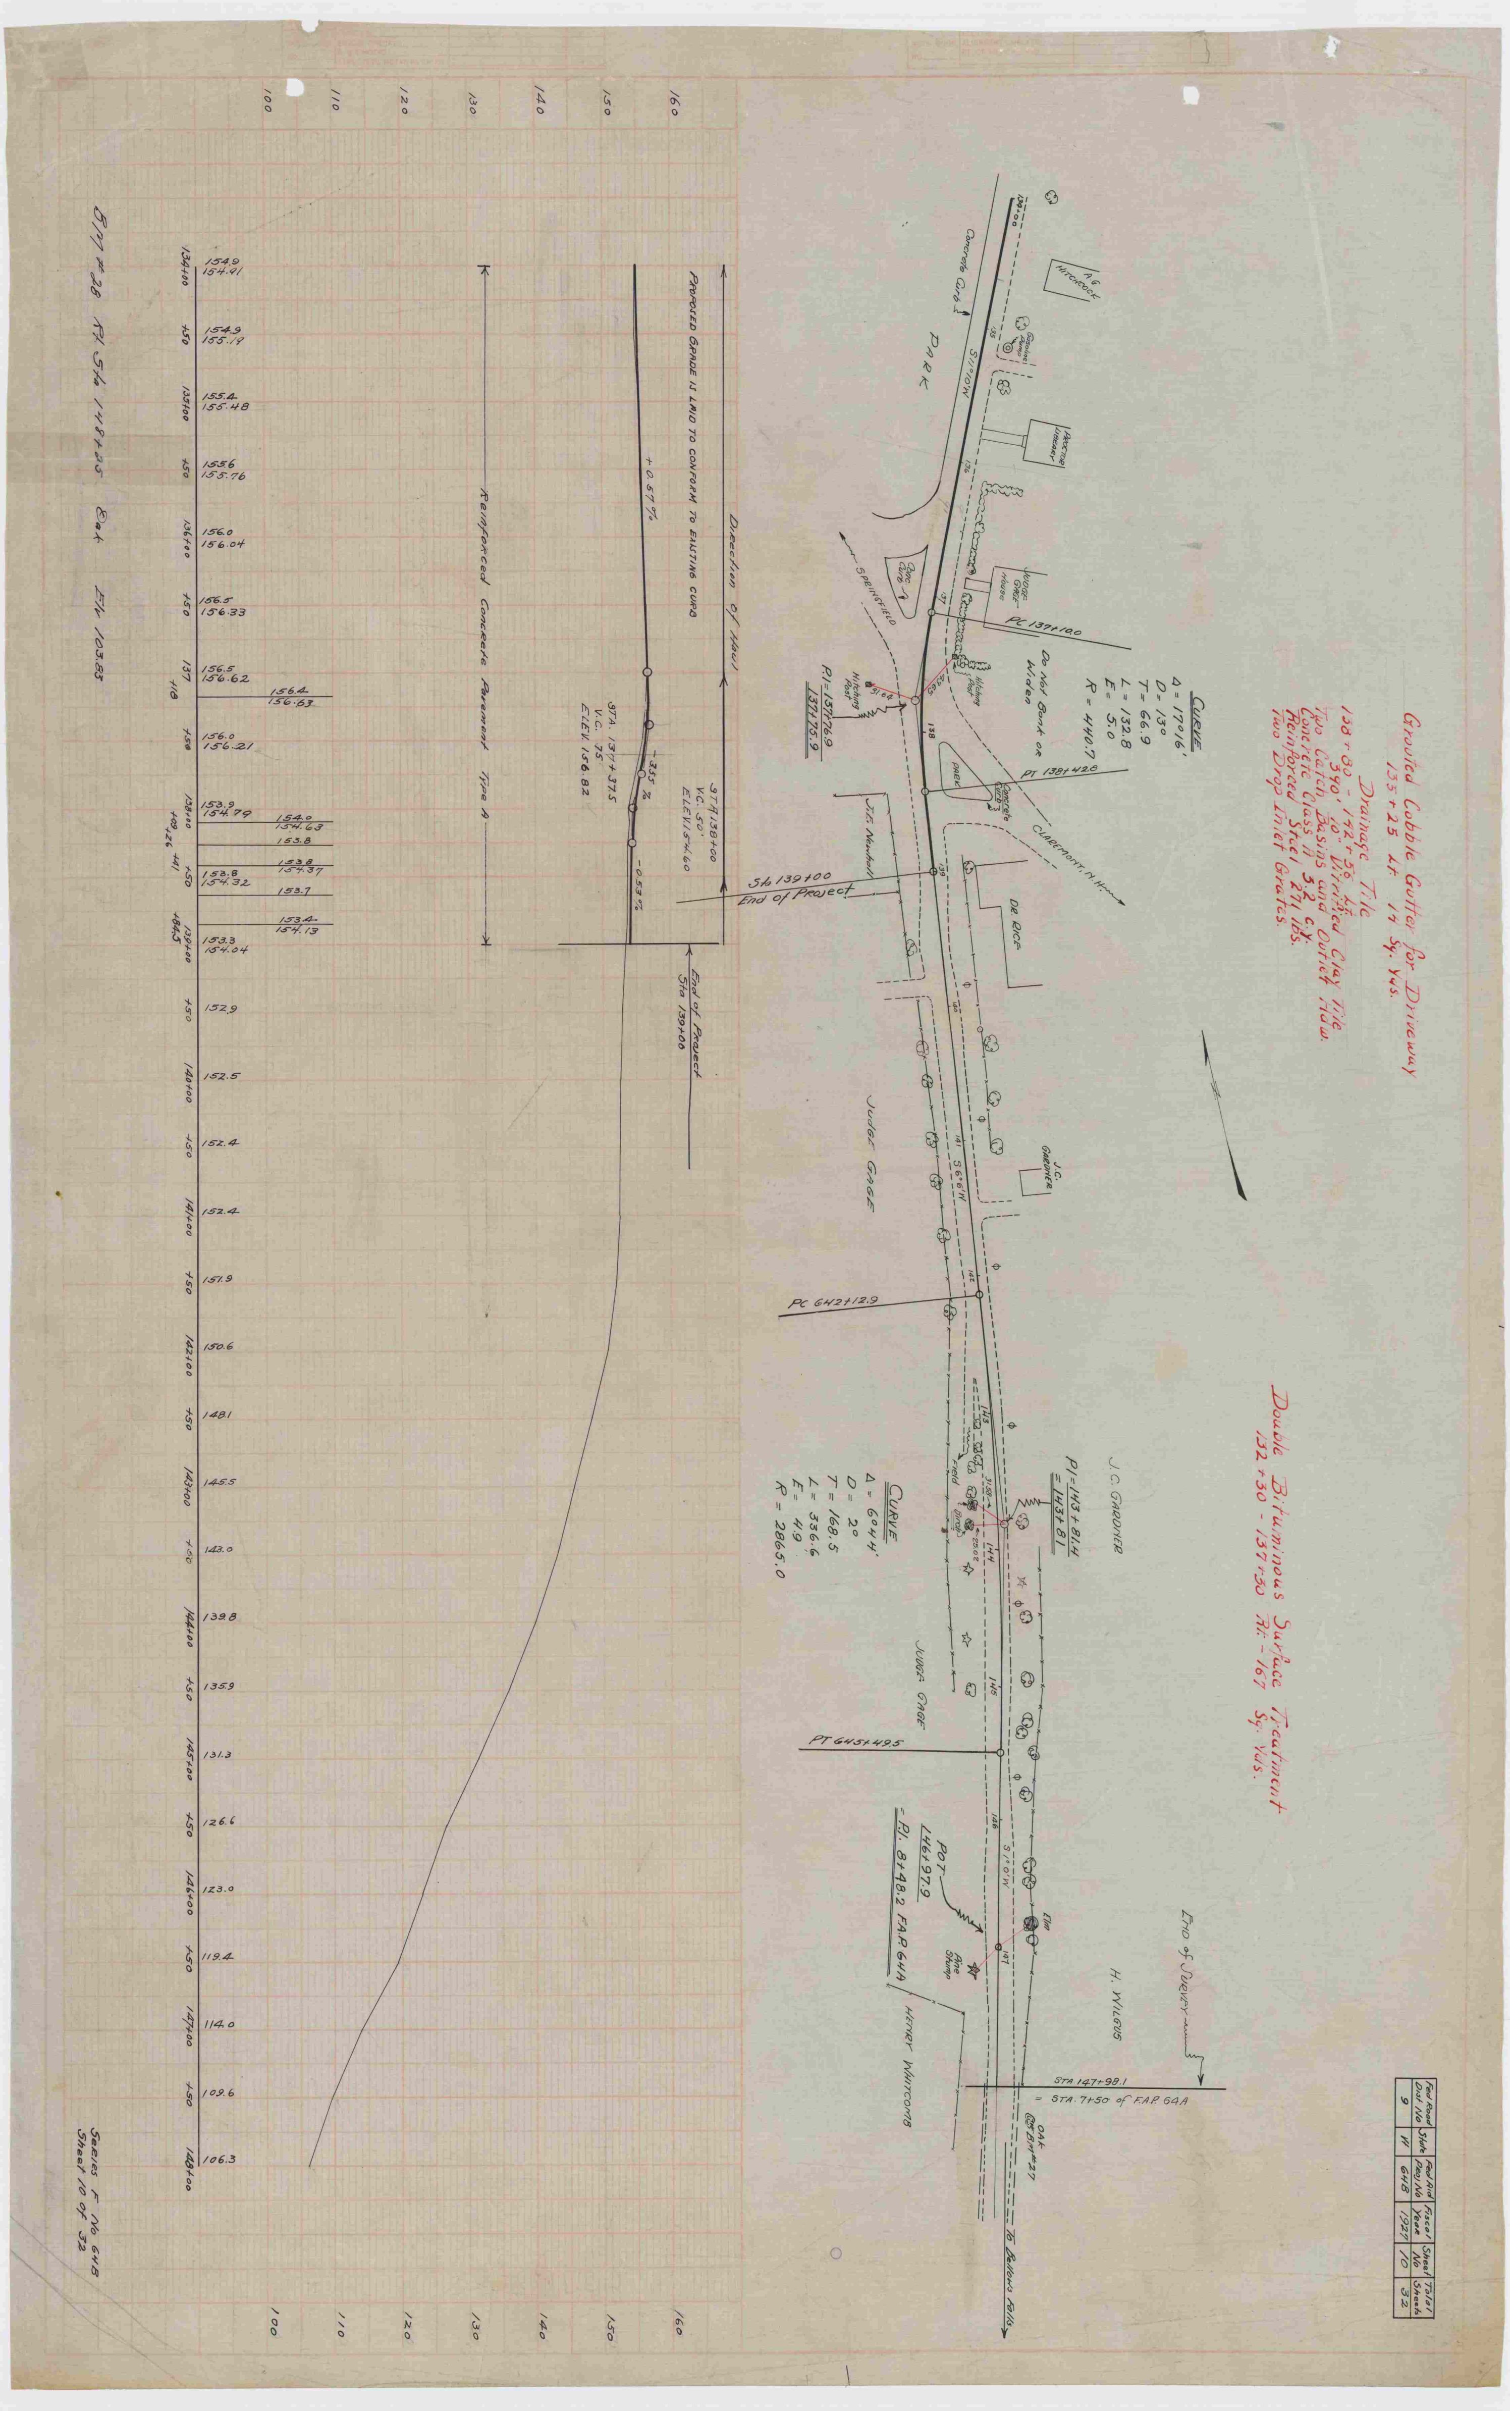 Grouted Cobble Gutter for Driveway
135+25 Lt 17 Sq. Yds.
Drainage Tile
138+80 - 142+56 Lt.
390' 10" Vitrified Clay Tile
Two Catch Basins and Outlet Hdw.
Concrete Class A 3.2 c.y.
Reinforced Steel 271 lbs.
Two Drop Inlet Grates.
Double Bituminous Surface Treatment
132+30 - 137+30 Rt. - 167 Sq. Yds.
Fed Road Dist. No
State
Fed Aid Proj. No
Fiscal Year
Sheet No
Total Sheets
9
Vt
64B
1927
10
32
CURVE
Δ = 17°16'
D = 13°
T = 66.9
L = 132.8
E = 5.0
R = 440.7
Do Not Bank or
Widen
134+00
A.G.
HITCHCOCK
Concrete Curb
PARK
135
Gasoline
Pump
S11°10'W
136
PROCTOR
LIBRARY
JUDGE
GAGE
HOUSE
PC 137+10.0
137
Conc
Curb
SPRINGFIELD
Hitching
Post
Hitching
Post
P.I. = 137+76.9
137+75.9
138
PT 138+42.8
PARK
Concrete
Curb
CLAREMONT, N.H.
J.E. Newhall
Sta 139+00
End of Project
139
DR RICE
140
JUDGE GAGE
141
S6°6'W
J.C.
GARDNER
142
PC 642+12.9
143
J.C. GARDNER
PI = 143+81.4
= 143+81
144
CURVE
Δ = 6°44'
D = 2°
T = 168.5
L = 336.6
E = 4.9
R = 2865.0
JUDGE GAGE
145
PT 645+49.5
146
S1°0'W
POT
146+97.9
= P.I. 8+48.2 F.A.P. 64A
Elm
Pine
Stump
147
H. WILGUS
HENRY WHITCOMB
END of SURVEY
STA 147+98.1
= STA. 7+50 of F.A.P. 64A
OAK
BM#27
To Bellows Falls
160
150
140
130
120
110
100
Direction of Haul
PROPOSED GRADE IS LAID TO CONFORM TO EXISTING CURB
+0.57%
STA 137+37.5
V.C. 75
ELEV. 156.82
-3.55 %
STA 138+00
V.C. 50'
ELEV. 154.60
-0.53%
End of Project
Sta 139+00
Reinforced Concrete Pavement Type A
160
150
140
130
120
110
100
154.9 154.9 155.4 155.6 156.0 156.5 156.5 156.4 156.0 153.9 154.0 153.8 153.8 153.8 153.7 153.4 153.3 152.9 152.5 152.4 152.4 151.9 150.6 148.1 145.5 143.0 139.8 135.9 131.3 126.6 123.0 119.4 114.0 109.6 106.3
154.91 155.19 155.48 155.76 156.04 156.33 156.62 156.63 156.21 154.79 154.63 154.37 154.32 154.13 154.04
134+00 +50 135+00 +50 136+00 +50 137 +18 +50 138+00 +09 +26 +41 +50 +84.5 139+00 +50 140+00 +50 141+00 +50 142+00 +50 143+00 +50 144+00 +50 145+00 +50 146+00 +50 147+00 +50 148+00
BM #28 Rt Sta 148+85 Oak Elv 103.85
Series F No 64B
Sheet 10 of 32